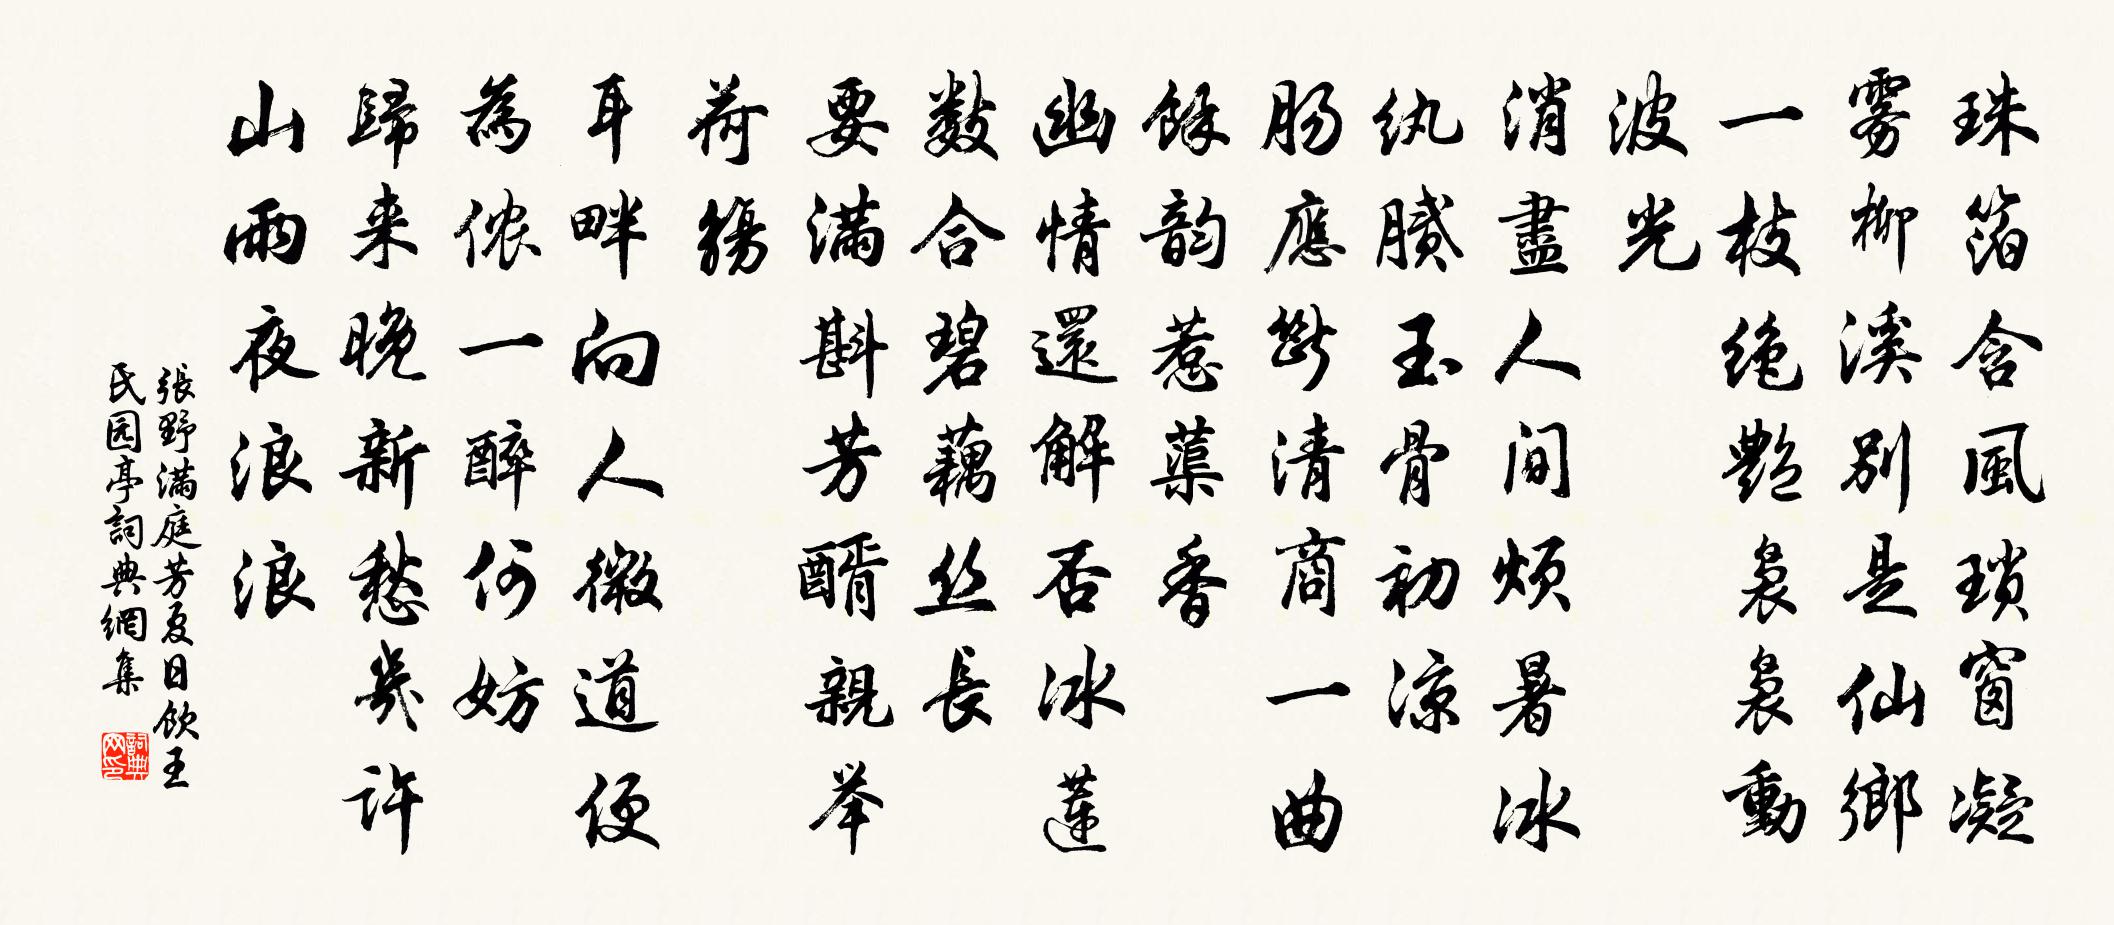 珠箔含風瑣窗凝
雾柳溪別是仙鄉
一枝绝艷裊裊動
波光
消盡人间煩暑冰
纨膩玉骨初凉
肠應斷清商一曲
餘韵惹蕖香
幽情還解否冰蓮
数合碧藕丝長
要满斟芳醑親举
荷觴
耳畔向人微道便
為侬一醉何妨
歸来晚新愁幾许
山雨夜浪浪
張野满庭芳夏日飲王
氏园亭詞典網集
詞典网印